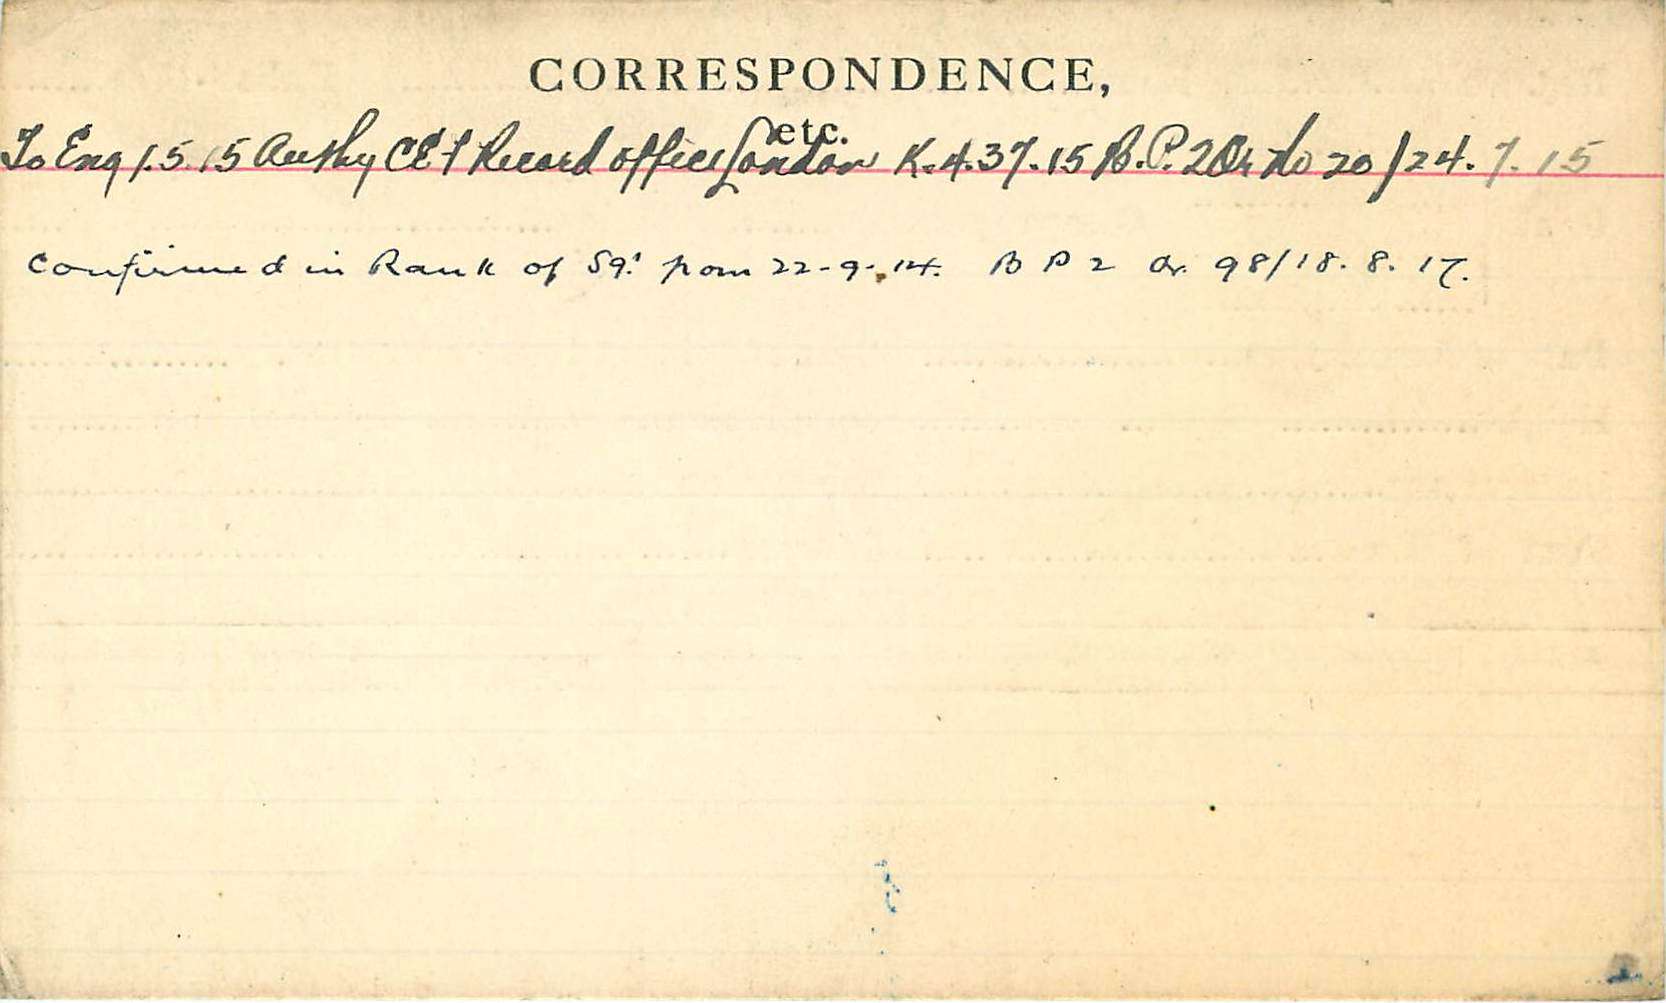 CORRESPONDENCE,
etc.
To Eng 1.5.15 Authy CEF Record Office London K.4.37.15 B.P.2 Or No 20/24.7.15
Confirmed in Rank of Sgt from 22-9-14. B P 2 Or. 98/18.8.17.